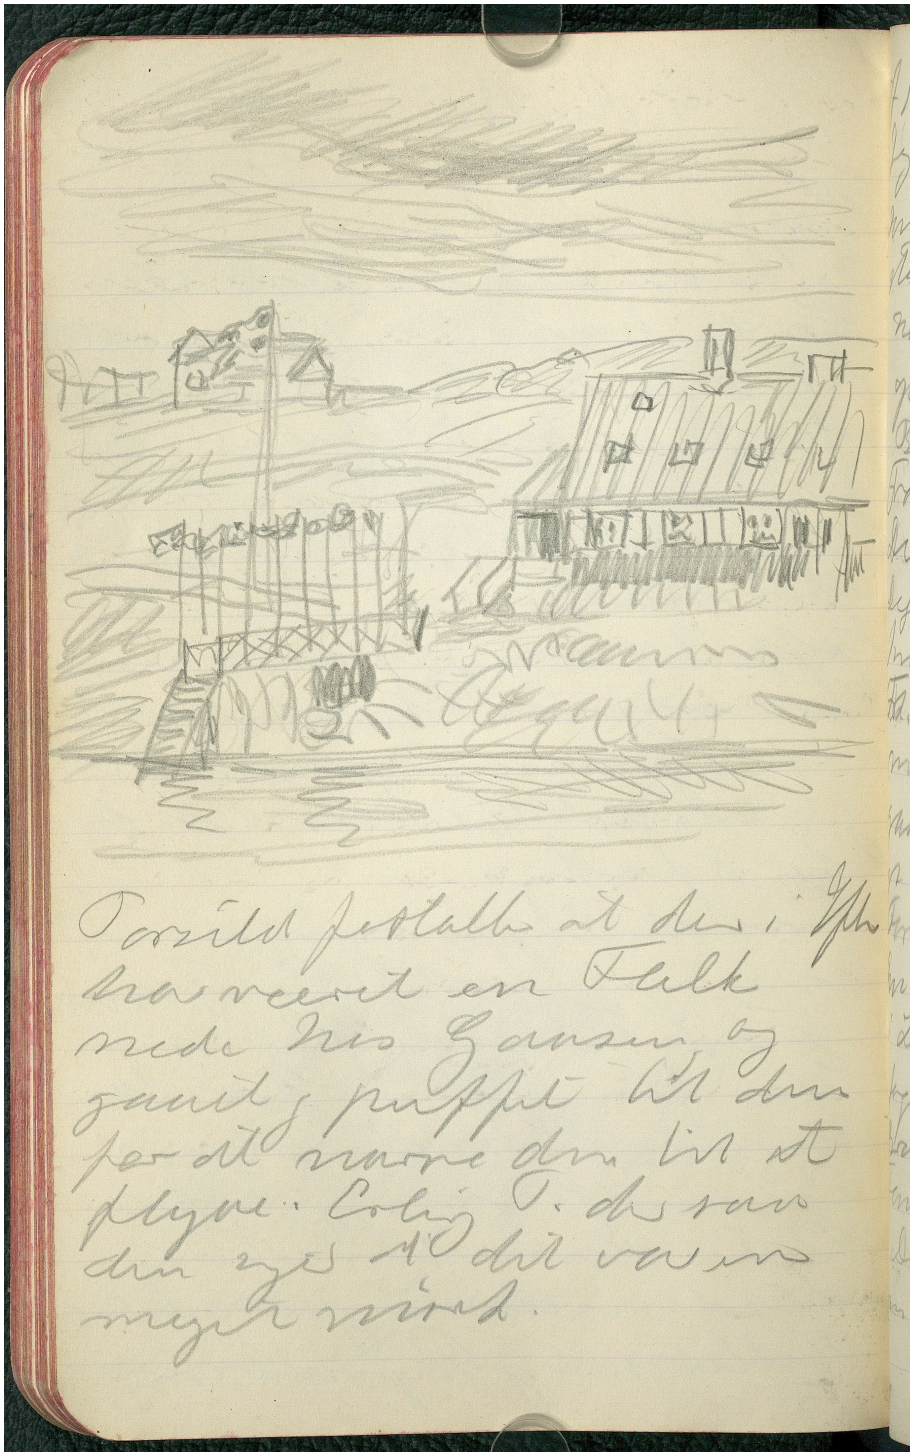 Porsild fortalte at der i Efter
har været en Falk
nede hos Hansen og
gaaet og puffet til den
for at narre den til at
flyve. Erling P. der saa
den siger at det var en
meget mørk.